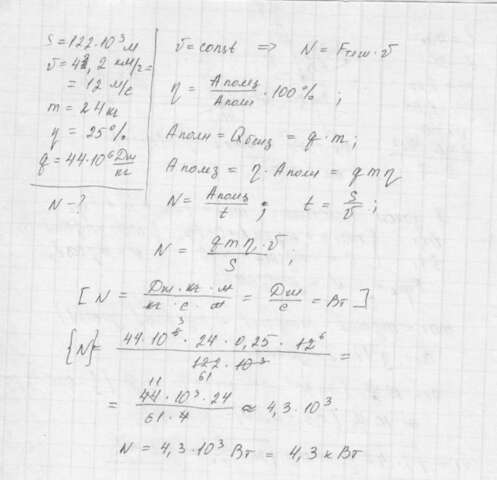 S = 122·10³ м
v = 43,2 км/ч =
= 12 м/с
m = 24 кг
η = 25%
q = 44·10⁶ Дж/кг
N - ?
v = const => N = Fтяж · v
η = Aполез/Aполн · 100% ;
Aполн = Qбенз = q · m ;
Aполез = η · Aполн = q m η
N = Aполез/t ; t = S/v ;
N = q m η · v / S ;
[ N = Дж · кг · м / кг · с · м = Дж/с = Вт ]
{N} = 44·10⁶ ³ · 24 · 0,25 · 12 ⁶ / 122 · 10³ 61 =
= 11 44 · 10³ · 24 / 61 · 4 ≈ 4,3 · 10³
N = 4,3 · 10³ Вт = 4,3 кВт